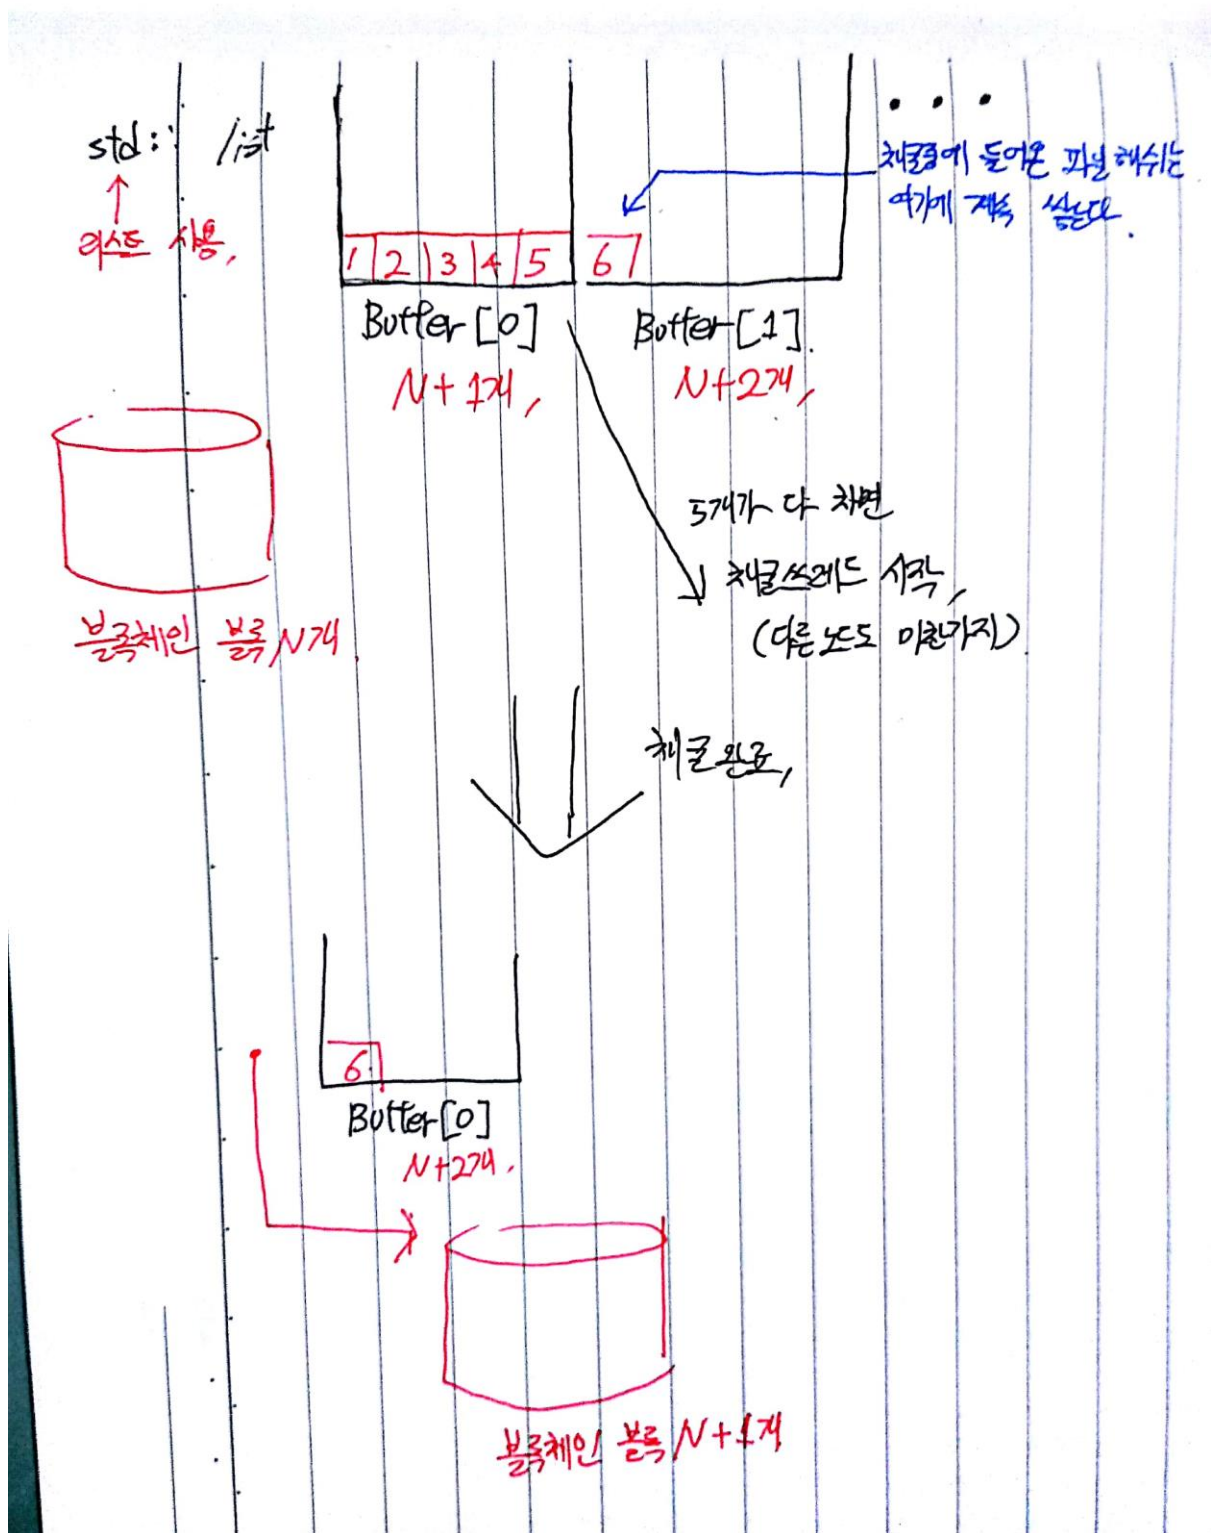 std:: list
리스트 사용,
• • •
채굴중에 들어온 파일 해쉬는
여기에 계속 쌓는다.
1 2 3 4 5
6
Buffer[0]
Buffer[1].
N+1개,
N+2개,
5개가 다 차면
채굴쓰레드 시작,
(다른 노드도 마찬가지)
블록체인 블록 N개
채굴 완료,
6
Buffer[0]
N+2개.
블록체인 블록 N+1개